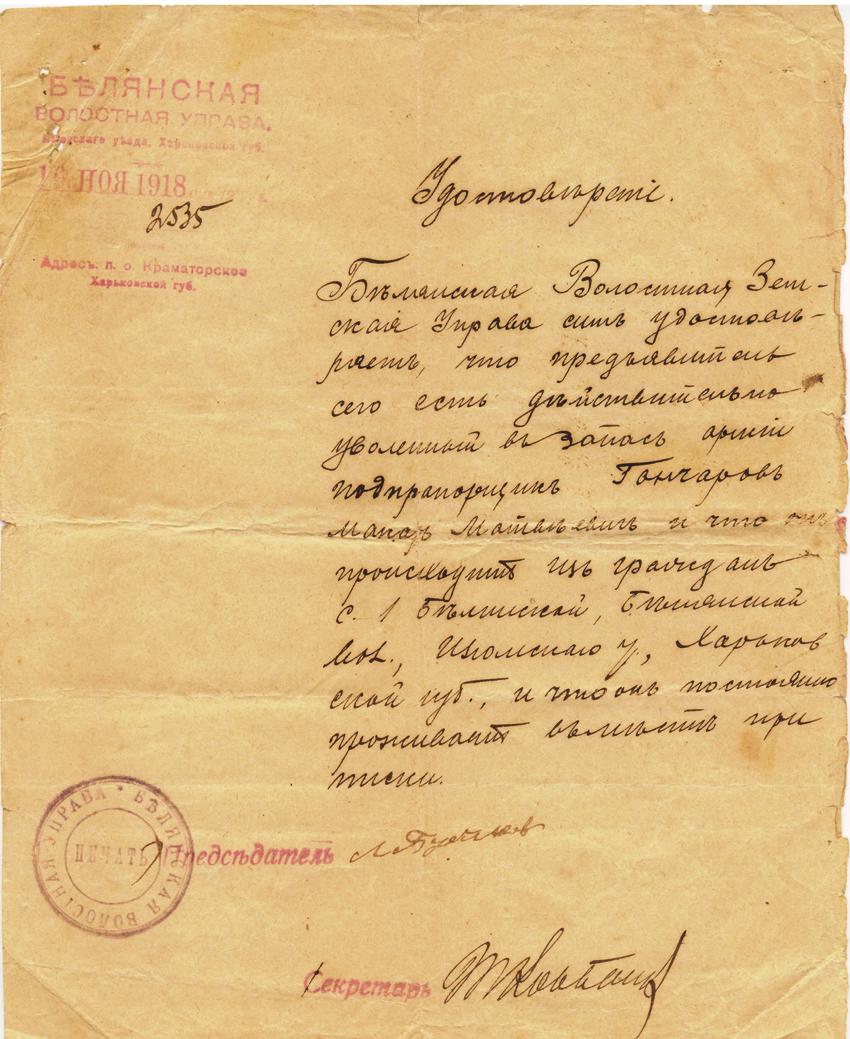 БѢЛЯНСКАЯ
ВОЛОСТНАЯ УПРАВА.
уѣзда, Харьковской губ.
НОЯ 1918
2535
Адресъ: п. о. Краматорское
Харьковской губ.
Удостовѣренiе.
Бѣлянская Волостная Зем-
ская Управа симъ удостовѣ-
ряетъ, что предъявитель
сего есть дѣйствительно
уволенный въ запасъ армiи
подпрапорщикъ Гончаровъ
Макаръ Матвѣевичъ и что онъ
происходитъ изъ гражданъ
с. Бѣлянской, Бѣлянской
вол., Изюмскаго у, Харьков
ской губ., и что онъ постоянно
проживаетъ въ мѣстѣ при
писки.
БѢЛЯНСКАЯ ВОЛОСТНАЯ УПРАВА
ПЕЧАТЬ
Предсѣдатель
Секретарь